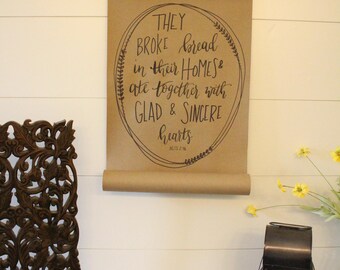 THEY
BROKE bread
in their HOMES &
ate together with
GLAD & SINCERE
hearts.